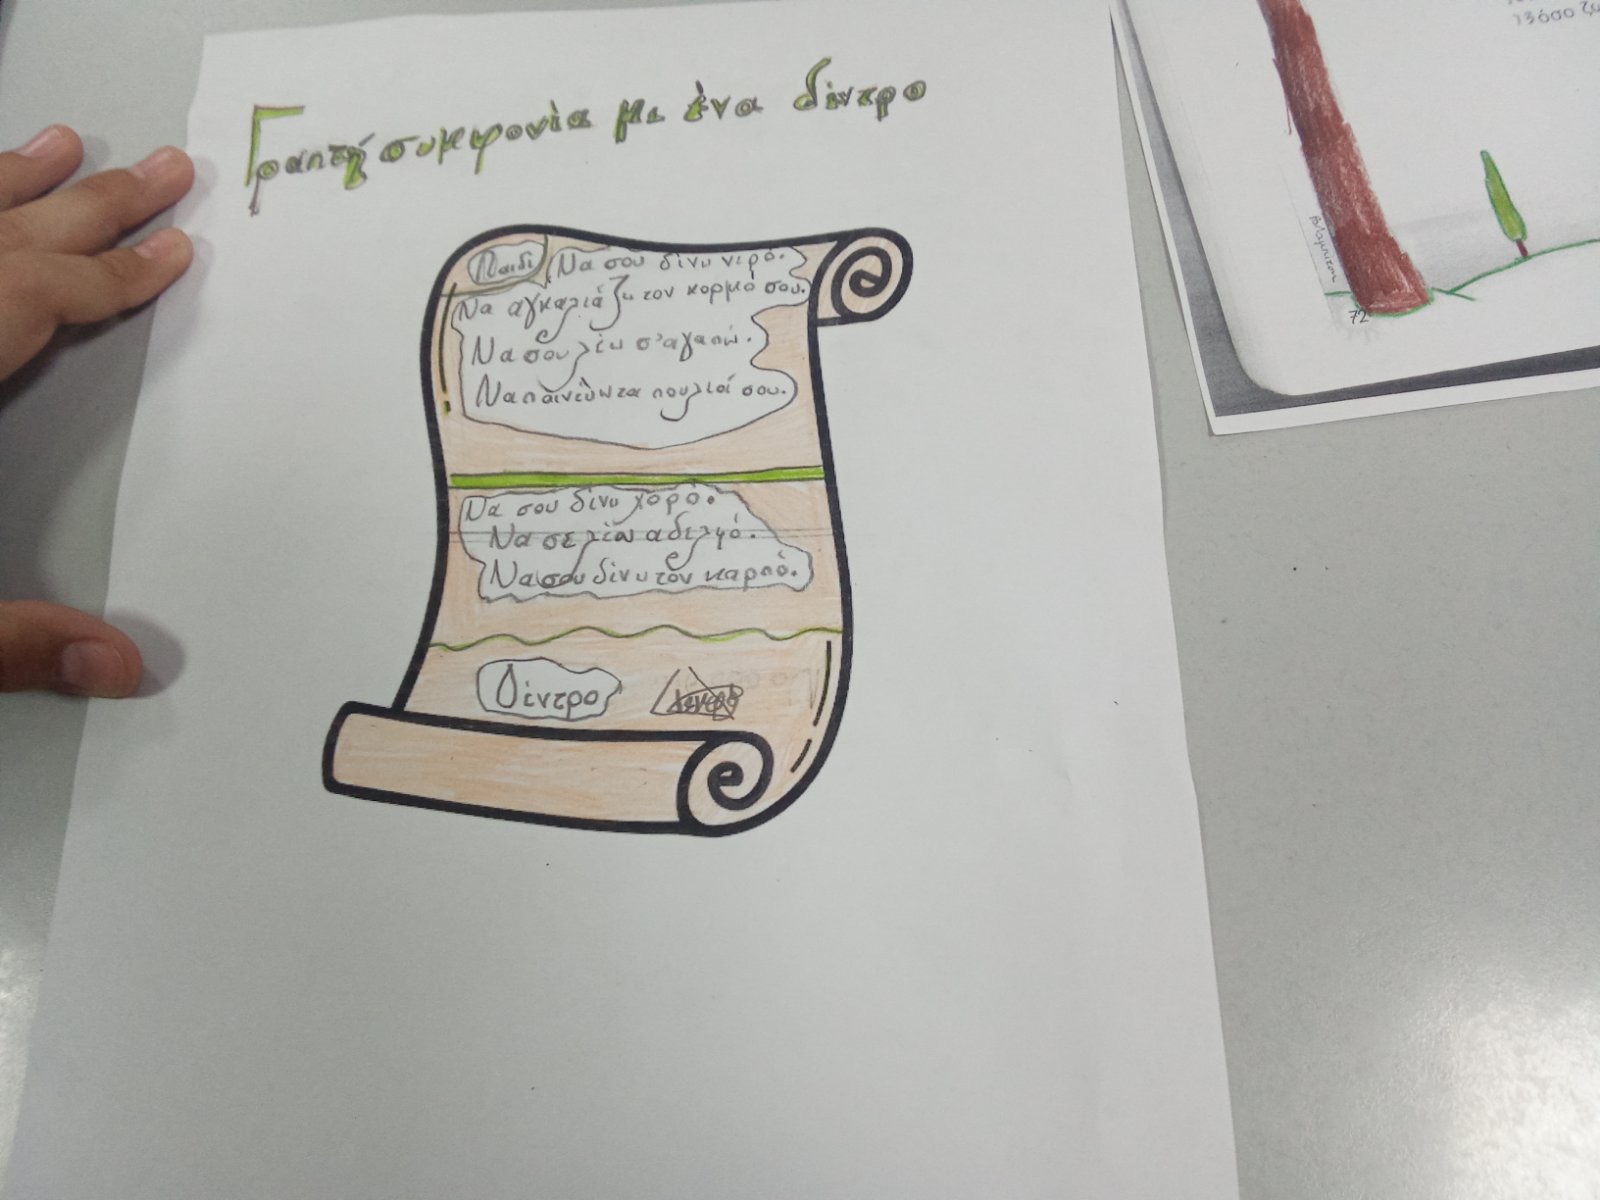 Γραπτή συμφωνία με ένα δέντρο
Παιδί Να σου δίνω νερό.
Να αγκαλιάζω τον κορμό σου.
Να σου λέω σ'αγαπώ.
Να παινεύω τα πουλιά σου.
Να σου δίνω χορό.
Να σε λέω αδελφό.
Να σου δίνω τον καρπό.
Δέντρο
13 όσο ζω
72